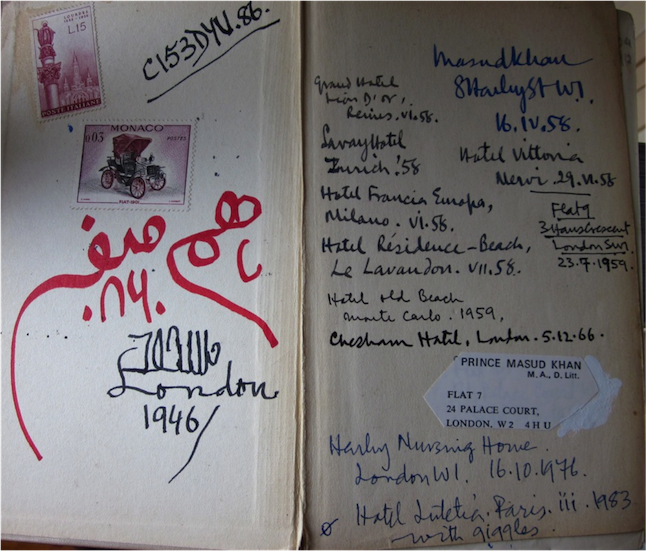 LOURDES
L.15
POSTE ITALIANE
C153DYV.86.
MONACO
0,03 POSTES
London
1946
Masud Khan
8 Harley St W1.
16.IV.58.
Grand Hotel
Lion D'or,
Reims. VI.58.
Savay Hotel
Zurich '58
Hotel Francia Europa,
Milano. VI.58.
Hotel Résidence-Beach,
Le Lavandou. VII.58.
Hotel Old Beach
Monte Carlo. 1959,
Chesham Hotel, London. 5.12.66.
Hotel Vittoria
Nervi. 29.VI.58
Flat 9
3 Hans Crescent
London SW1.
23.7.1959.
PRINCE MASUD KHAN
M.A., D. Litt.
FLAT 7
24 PALACE COURT,
LONDON, W2 4HU
Harley Nursing Home.
London W1. 16.10.1976.
Hotel Lutetia. Paris. iii. 1983
with giggles.